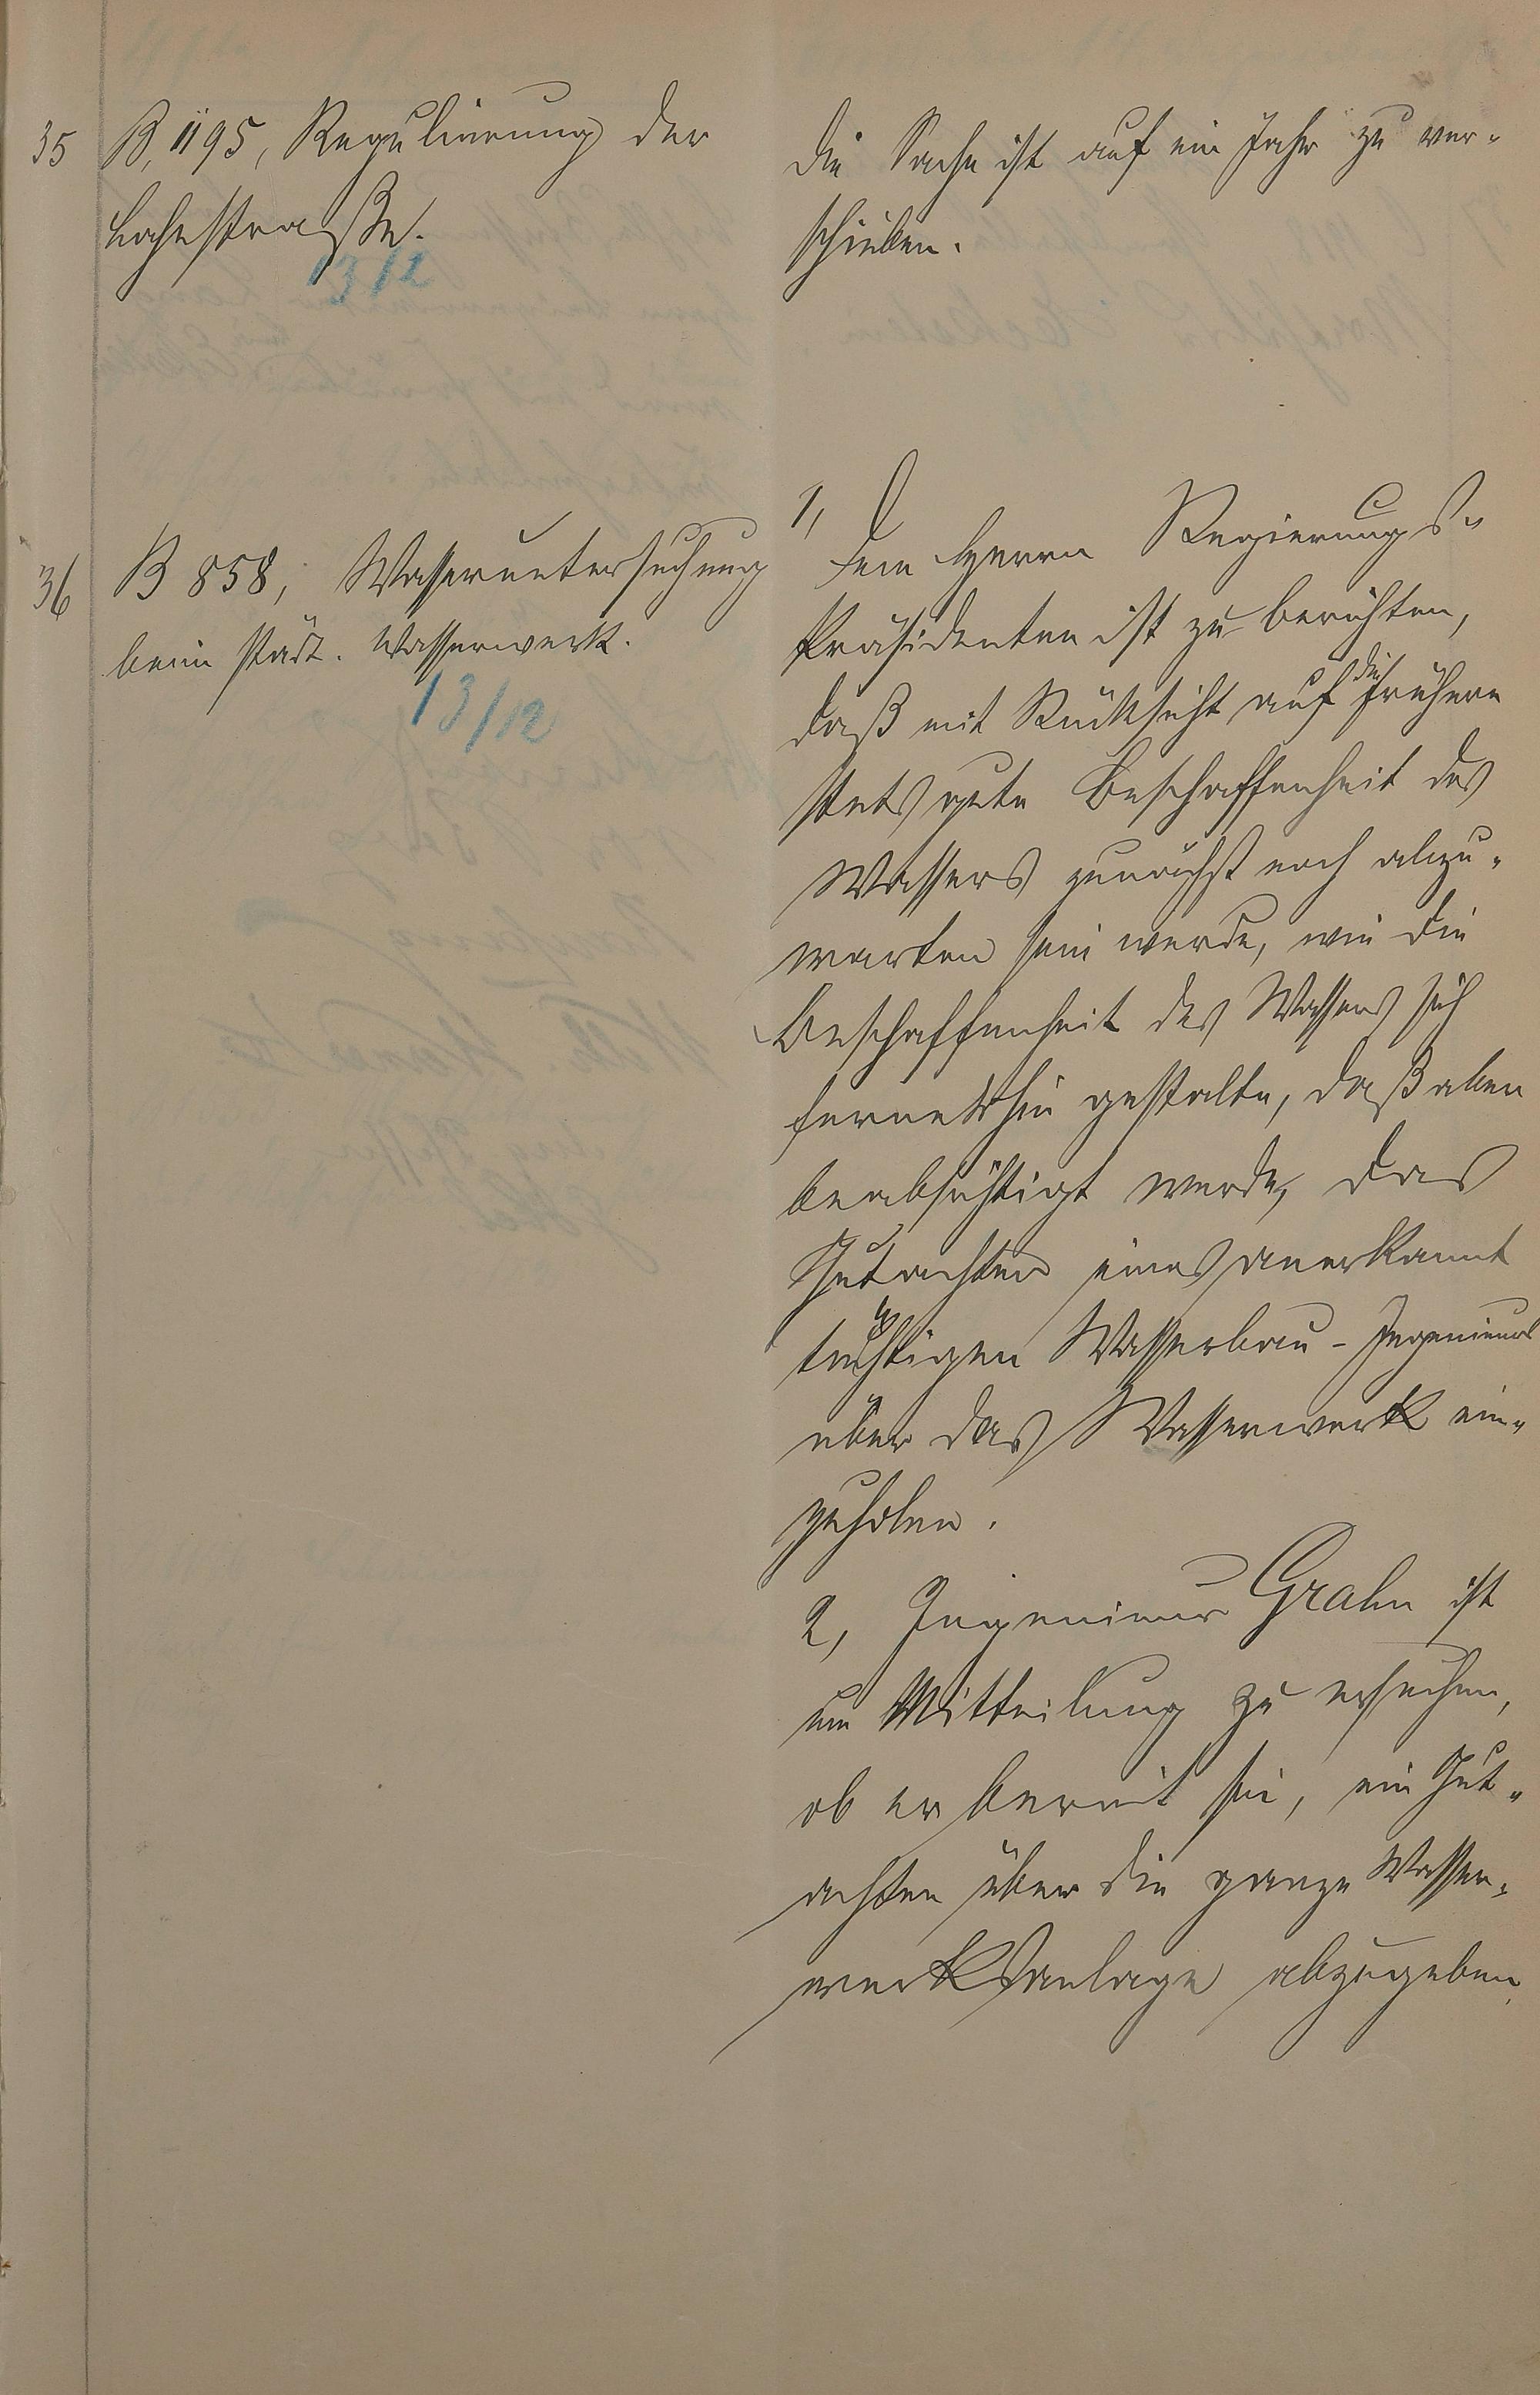 35
B, 1195, Regulierung der
Lohestraße.
13/12
Die Sache ist auf ein Jahr zu ver-
schieben.
36
B 858, Wasseruntersuchung
beim städt. Wasserwerk.
13/12
1,
Dem Herrn Regierungs-
Präsidenten ist zu berichten,
daß mit Rücksicht auf die frühere
stets gute Beschaffenheit des
Wassers zunächst noch abzu-
warten sein werde, wie die
Beschaffenheit des Wassers sich
fernerhin gestalte, daß aber
beabsichtigt werde, das
Gutachten eines anerkannt
tüchtigen Wasserbau-Ingenieurs
über das Wasserwerk ein-
zuholen.
2, Ingenieur Grahn ist
um Mitteilung zu ersuchen,
ob er bereit sei, ein Gut-
achten über die ganze Wasser-
werksanlage abzugeben.